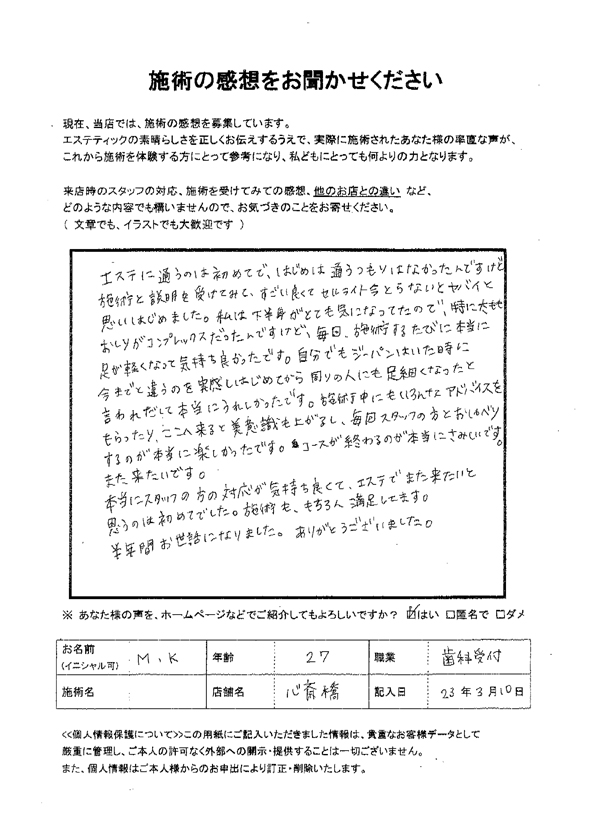 施術の感想をお聞かせください
現在、当店では、施術の感想を募集しています。
エステティックの素晴らしさを正しくお伝えするうえで、実際に施術されたあなた様の率直な声が、
これから施術を体験する方にとって参考になり、私どもにとっても何よりの力となります。
来店時のスタッフの対応、施術を受けてみての感想、他のお店との違い など、
どのような内容でも構いませんので、お気づきのことをお寄せください。
（ 文章でも、イラストでも大歓迎です ）
エステに通うのは初めてで、はじめは通うつもりはなかったんですけど
施術と説明を受けてみて、すごい良くてセルライト今とらないとヤバイと
思いはじめました。私は下半身がとても気になってたので、特に太もも
おしりがコンプレックスだったんですけど、毎回、施術するたびに本当に
足が軽くなって気持ち良かったです。自分でもジーパンはいた時に
今までと違うのを実感しはじめてから周りの人にも足細くなったと
言われだして本当にうれしかったです。施術中にもいろんなアドバイスを
もらったり、ここへ来ると美意識も上がるし、毎回スタッフの方とおしゃべり
するのが本当に楽しかったです。コースが終わるのが本当にさみしいです。
また来たいです。
本当にスタッフの方の対応が気持ち良くて、エステでまた来たいと
思うのは初めてでした。施術も、もちろん満足してます。
半年間お世話になりました。ありがとうございました。
※ あなた様の声を、ホームページなどでご紹介してもよろしいですか？ ☑はい □匿名で □ダメ
お名前 (イニシャル可) M.K 年齢 27 職業 歯科受付
施術名 店舗名 心斎橋 記入日 23年3月10日
<<個人情報保護について>>この用紙にご記入いただきました情報は、貴重なお客様データとして
厳重に管理し、ご本人の許可なく外部への開示・提供することは一切ございません。
また、個人情報はご本人様からのお申出により訂正・削除いたします。